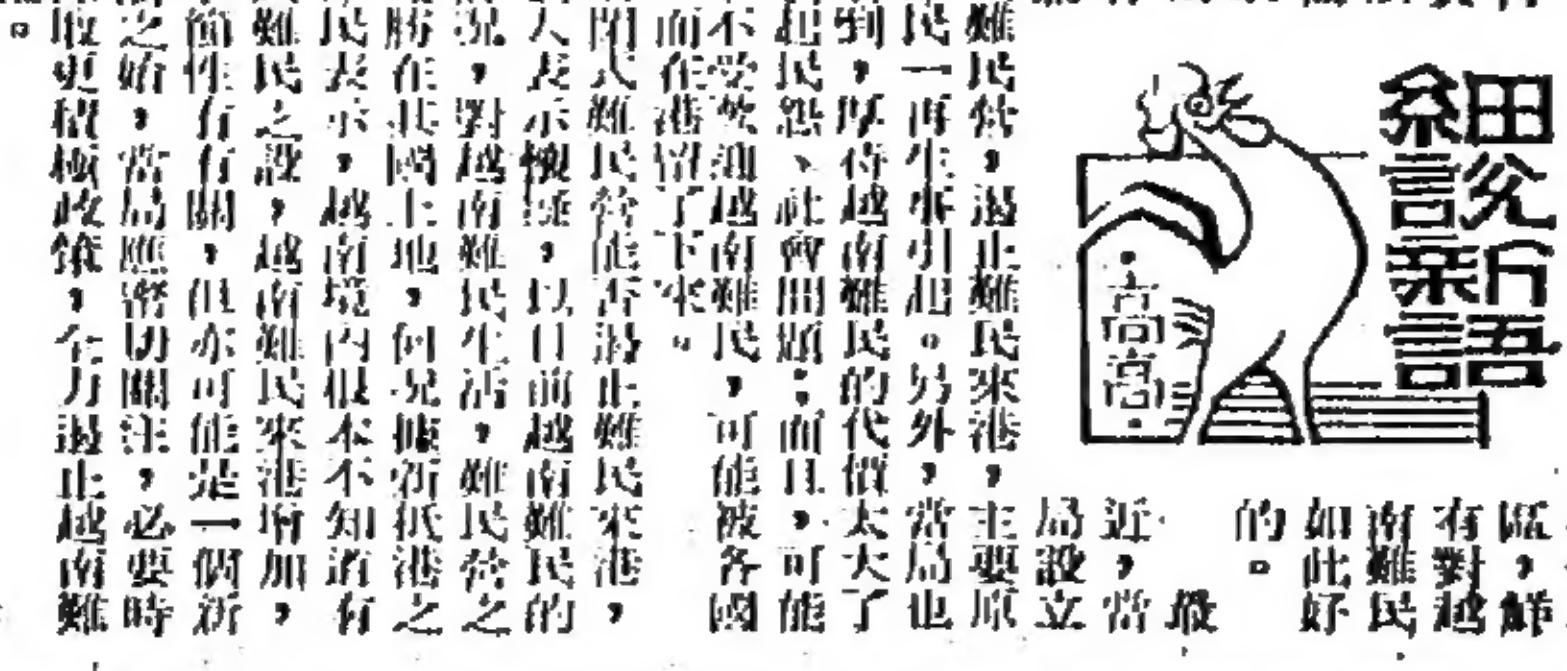 細說新語
·高高·
區,鮮
有對越
南難民
如此好
的。
最
近,當
局設立
難民營,遏止難民來港,主要原
民一再生事引起。另外,當局也
到,厚待越南難民的代價,太大了
起民怨、社會問題;而且,可能
不受歡迎越南難民,可能被各國
而在港留了下來。
閉式難民營能否遏止難民來港,
人表示懷疑,以目前越南難民的
況,對越南難民生活,難民營之
勝在其國土地,何況據新抵港之
民表示,越南境內根本不知道有
難民之設,越南難民來港增加,
節性有有關,但亦可能是一個新
之始,當局應密切關注,必要時
取更積極政策,全力遏止越南難
。